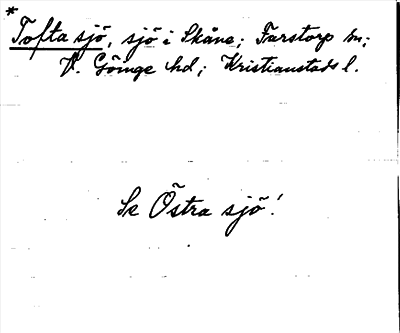 * Tofta sjö, sjö i Skåne; Farstorp sn;
V. Göinge hd; Kristianstads l.
Se Östra sjö!